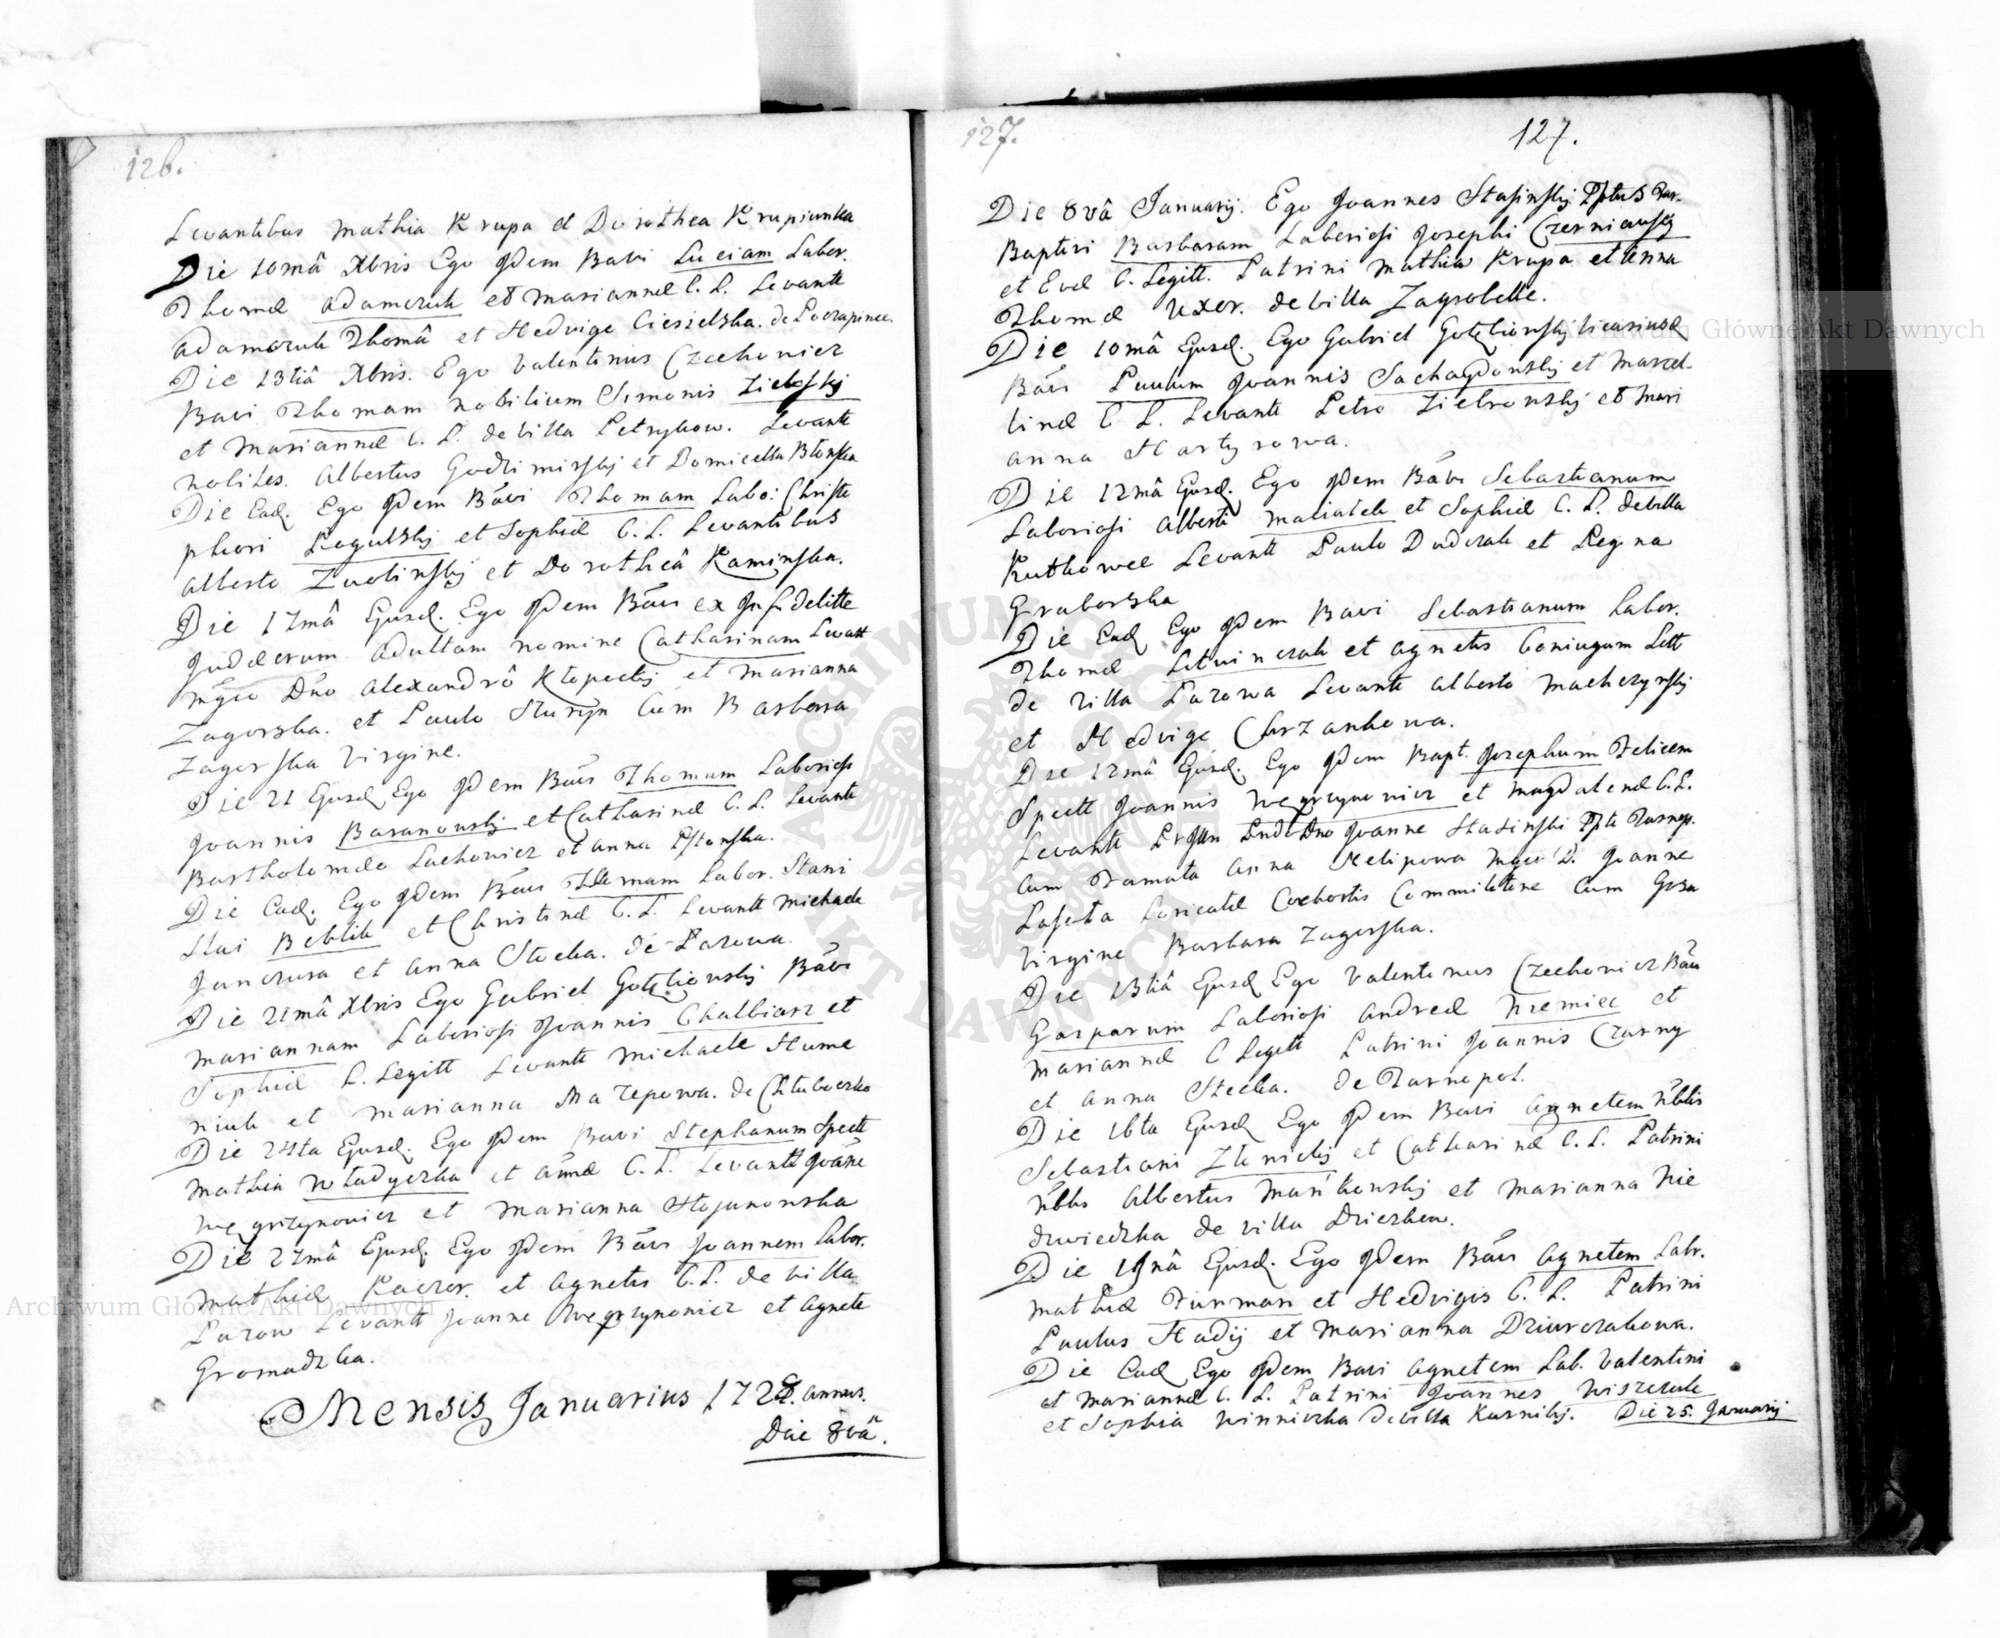 126.
Levantibus Mathia Krupa et Dorothea Krupianka
Die 10mâ Xbris Ego Idem Bavi Luciam Labor.
Thomæ Adamczuk et Mariannæ C. L. Levantt
Adamczuk Thomâ et Hedvige Ciesielska. de Poczapince.
Die 13tiâ Xbris. Ego Valentinus Czechowicz
Bavi Thomam nobilium Simonis
et Mariannæ C. L. de villa Petrykow. Levantt
nobiles. Albertus Godzimirskij et Domicella Błonska
Die Ead. Ego Idem Bâvi Thomam Labo: Christo
phori Rogulskij et Sophiæ C. L. Levantibus
Alberto Zwolinskij et Dorotheâ Kaminska.
Die 17mâ Ejusd. Ego Idem Bâvi ex Infidelitte
Judæorum adultam nomine Catharinam Levantt
Mgco Dno Alexandrô Kłopockij et Marianna
Zagorska. et Paulo cum Barbara
Zagorska Virgine.
Die 21 Ejusd Ego Idem Bâvi Thomam Laboriosi
Joannis Baranowskij et Catharinæ C. L. Levantt
Bartholomæo Lachowicz et Anna
Die Ead. Ego Idem Bâvi Thomam Labor. Stani
slai Beblik et Christinæ C. L. Levantt Michaele
et Anna Stecka. de Łozowa.
Die 21mâ Xbris Ego Gabriel Bâvi
Mariannam Laboriosi Joannis Chalbiarz et
Sophiæ C. Legitt Levantt Michaele Hume
niuk et Marianna Mazepowa. de Chłuboczko
Die 24ta Ejusd. Ego Idem Bavi Stephanum Spectt
Mathia Władyczka et Annæ C. L. Levantt Joâne
Węgrzynowicz et Marianna Stojanowska
Die 27mâ Ejusd. Ego Idem Bâvi Joannem Labor.
Mathiæ Kaczor. et Agnetis C. L. de villa
Łozow Levantt Joanne Węgrzynowicz et Agnete
Gromadzka.
Mensis Januarius 1728. annus.
Die 8vâ.
127.
127.
Die 8vâ Januarij. Ego Joannes Stasinskij Pptus Tar.
Baptivi Barbaram Laboriosi Josephi Czerniawskij
et Evæ C. Legitt. Patrini Mathia Krupa et Anna
Thomæ Uxor. de villa Zagrobelle.
Die 10mâ Ejusd. Ego Gabriel
Bâvi Paulum Joannis et Marcel-
linæ C. L. Levantt Petro Zielonskij et Mari
anna Martyrowa.
Die 12mâ Ejusd. Ego Idem Bâvi Sebastianum
Laboriosi Alberti et Sophiæ C. L. de villa
Kutkowce Levantt Paulo Dudczak et Regina
Graborska
Die Ead Ego Idem Bavi Sebastianum Labor.
Thomæ Litwinczuk et Agnetis Coniugum Lett
de villa Łozowa Levantt Alberto Machczynskij
et Hedvige Charzankowa.
Die 12mâ Ejusd. Ego Idem Bapt. Josephum Felicem
Spectt Joannis Węgrzynowicz et Magdalenæ C. L.
Levantt Dno Joanne Stasinski Tarnop.
Cum Famata Anna Mgco D. Joanne
Lasota Loricatæ Cohortis Commilitone cum Gosa
Virgine Barbara Zagorska.
Die 13tiâ Ejusd Ego Valentinus Czechowicz Bâvi
Gasparum Laboriosi Andreæ Niemiec et
Mariannæ C Legitt Patrini Joannis Czarny
et Anna Stecka. de Tarnopol.
Die 16ta Ejusd Ego Idem Bavi Agnetem Nbilis
Sebastiani et Catharinæ C. L. Patrini
Nbles Albertus Mankowskij et Marianna Nie
dzwiedzka de villa Dziczkow.
Die Ejusd. Ego Idem Bâvi Agnetem Labr.
Mathiæ Furman et Hedvigis C. L. Patrini
Paulus Hadij et Marianna Dziurczakowa.
Die Ead Ego Idem Bavi Agnetem Lab. Valentini
et Mariannæ C. L. Patrini Joannes
et Sophia Winnicka de villa Kurniki. Die 25. Januarij
Archiwum Główne Akt Dawnych
Archiwum Główne Akt Dawnych
ARCHIWUM GŁÓWNE AKT DAWNYCH